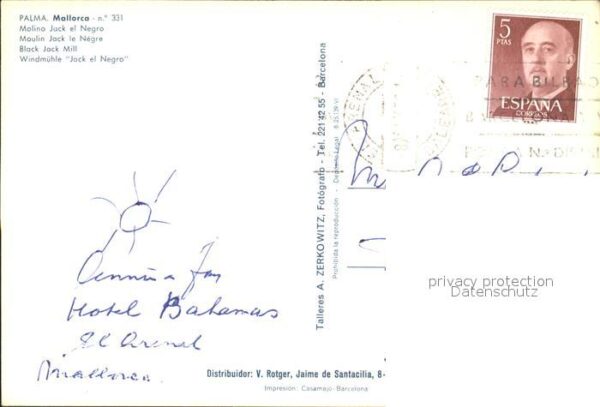 PALMA. Mallorca - n.° 331
Molino Jack el Negro
Moulin Jack le Négre
Black Jack Mill
Windmühle "Jack el Negro"
5
PTAS
ESPAÑA
CORREOS
PARA BILBAO
Talleres A. ZERKOWITZ, Fotógrafo - Tel. 221 42 55 - Barcelona
Prohibida la reproducción - Depósito Legal
Hotel Bahamas
El Arenal
Mallorca
privacy protection
Datenschutz
Distribuidor: V. Rotger, Jaime de Santacilia, 8-
Impresión: Casamajó-Barcelona